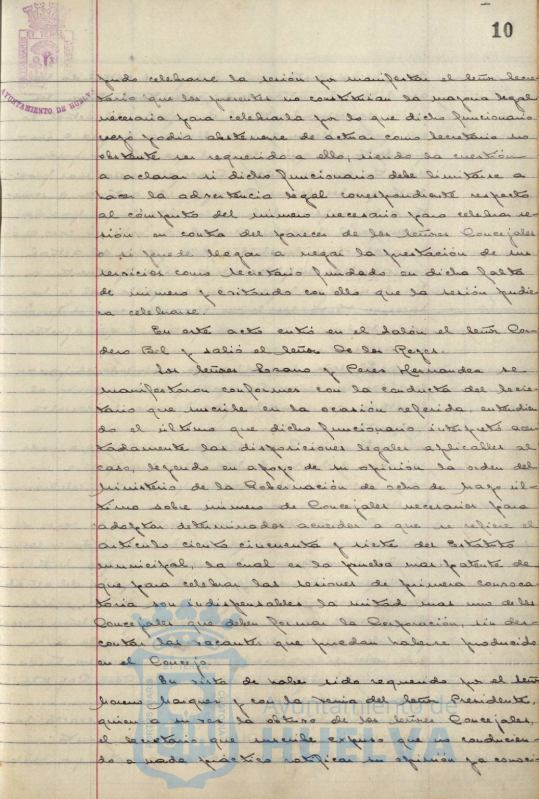 10
AYUNTAMIENTO DE HUELVA
pudo celebrarse la sesión por manifestar el señor Secre-
tario que los presentes no constituían la mayoria legal
necesaria para celebrarla por lo que dicho funcionario
negó podia abstenerse de actuar como Secretario no
obstante ser requerido a ello, siendo la cuestión
a aclarar si dicho funcionario debe limitarse a
hacer la advertencia legal correspondiente respecto
al cómputo del número necesario para celebrar se-
sión en contra del parecer de los señores Concejales
o si puede llegar a negar la prestación de sus
servicios como Secretario fundado en dicha falta
de número y evitando con ello que la sesión pudie-
ra celebrarse.
En este acto entró en el Salón el señor Cor-
dero Bel y salió el señor De los Reyes.
Los señores Lozano y Perez Hernandez se
manifestaron conformes con la conducta del Secre-
tario que suscribe en la ocasión referida, entendien-
do el último que dicho funcionario interpretó acer-
tadamente las disposiciones legales aplicables al
caso, leyendo en apoyo de su opinión la orden del
Ministerio de la Gobernación de ocho de mayo úl-
timo sobre número de Concejales necesarios para
adoptar determinados acuerdos a que se refiere el
artículo ciento cincuenta y siete del Estatuto
municipal, la cual es la prueba mas patente de
que para celebrar las sesiones de primera convoca-
toria es indispensable la mitad mas uno de los
Concejales que deben formar la Corporación, sin des-
contar las vacantes que puedan haberse producido
en el Concejo.
En vista de haber sido requerido por el señor
Moreno Marquez y con la venia del señor Presidente,
quien a su vez la obtuvo de los señores Concejales,
el Secretario que suscribe expuso que no conducien-
do a nada práctico ratificar su opinión ya conoci-
Ayuntamiento de
HUELVA